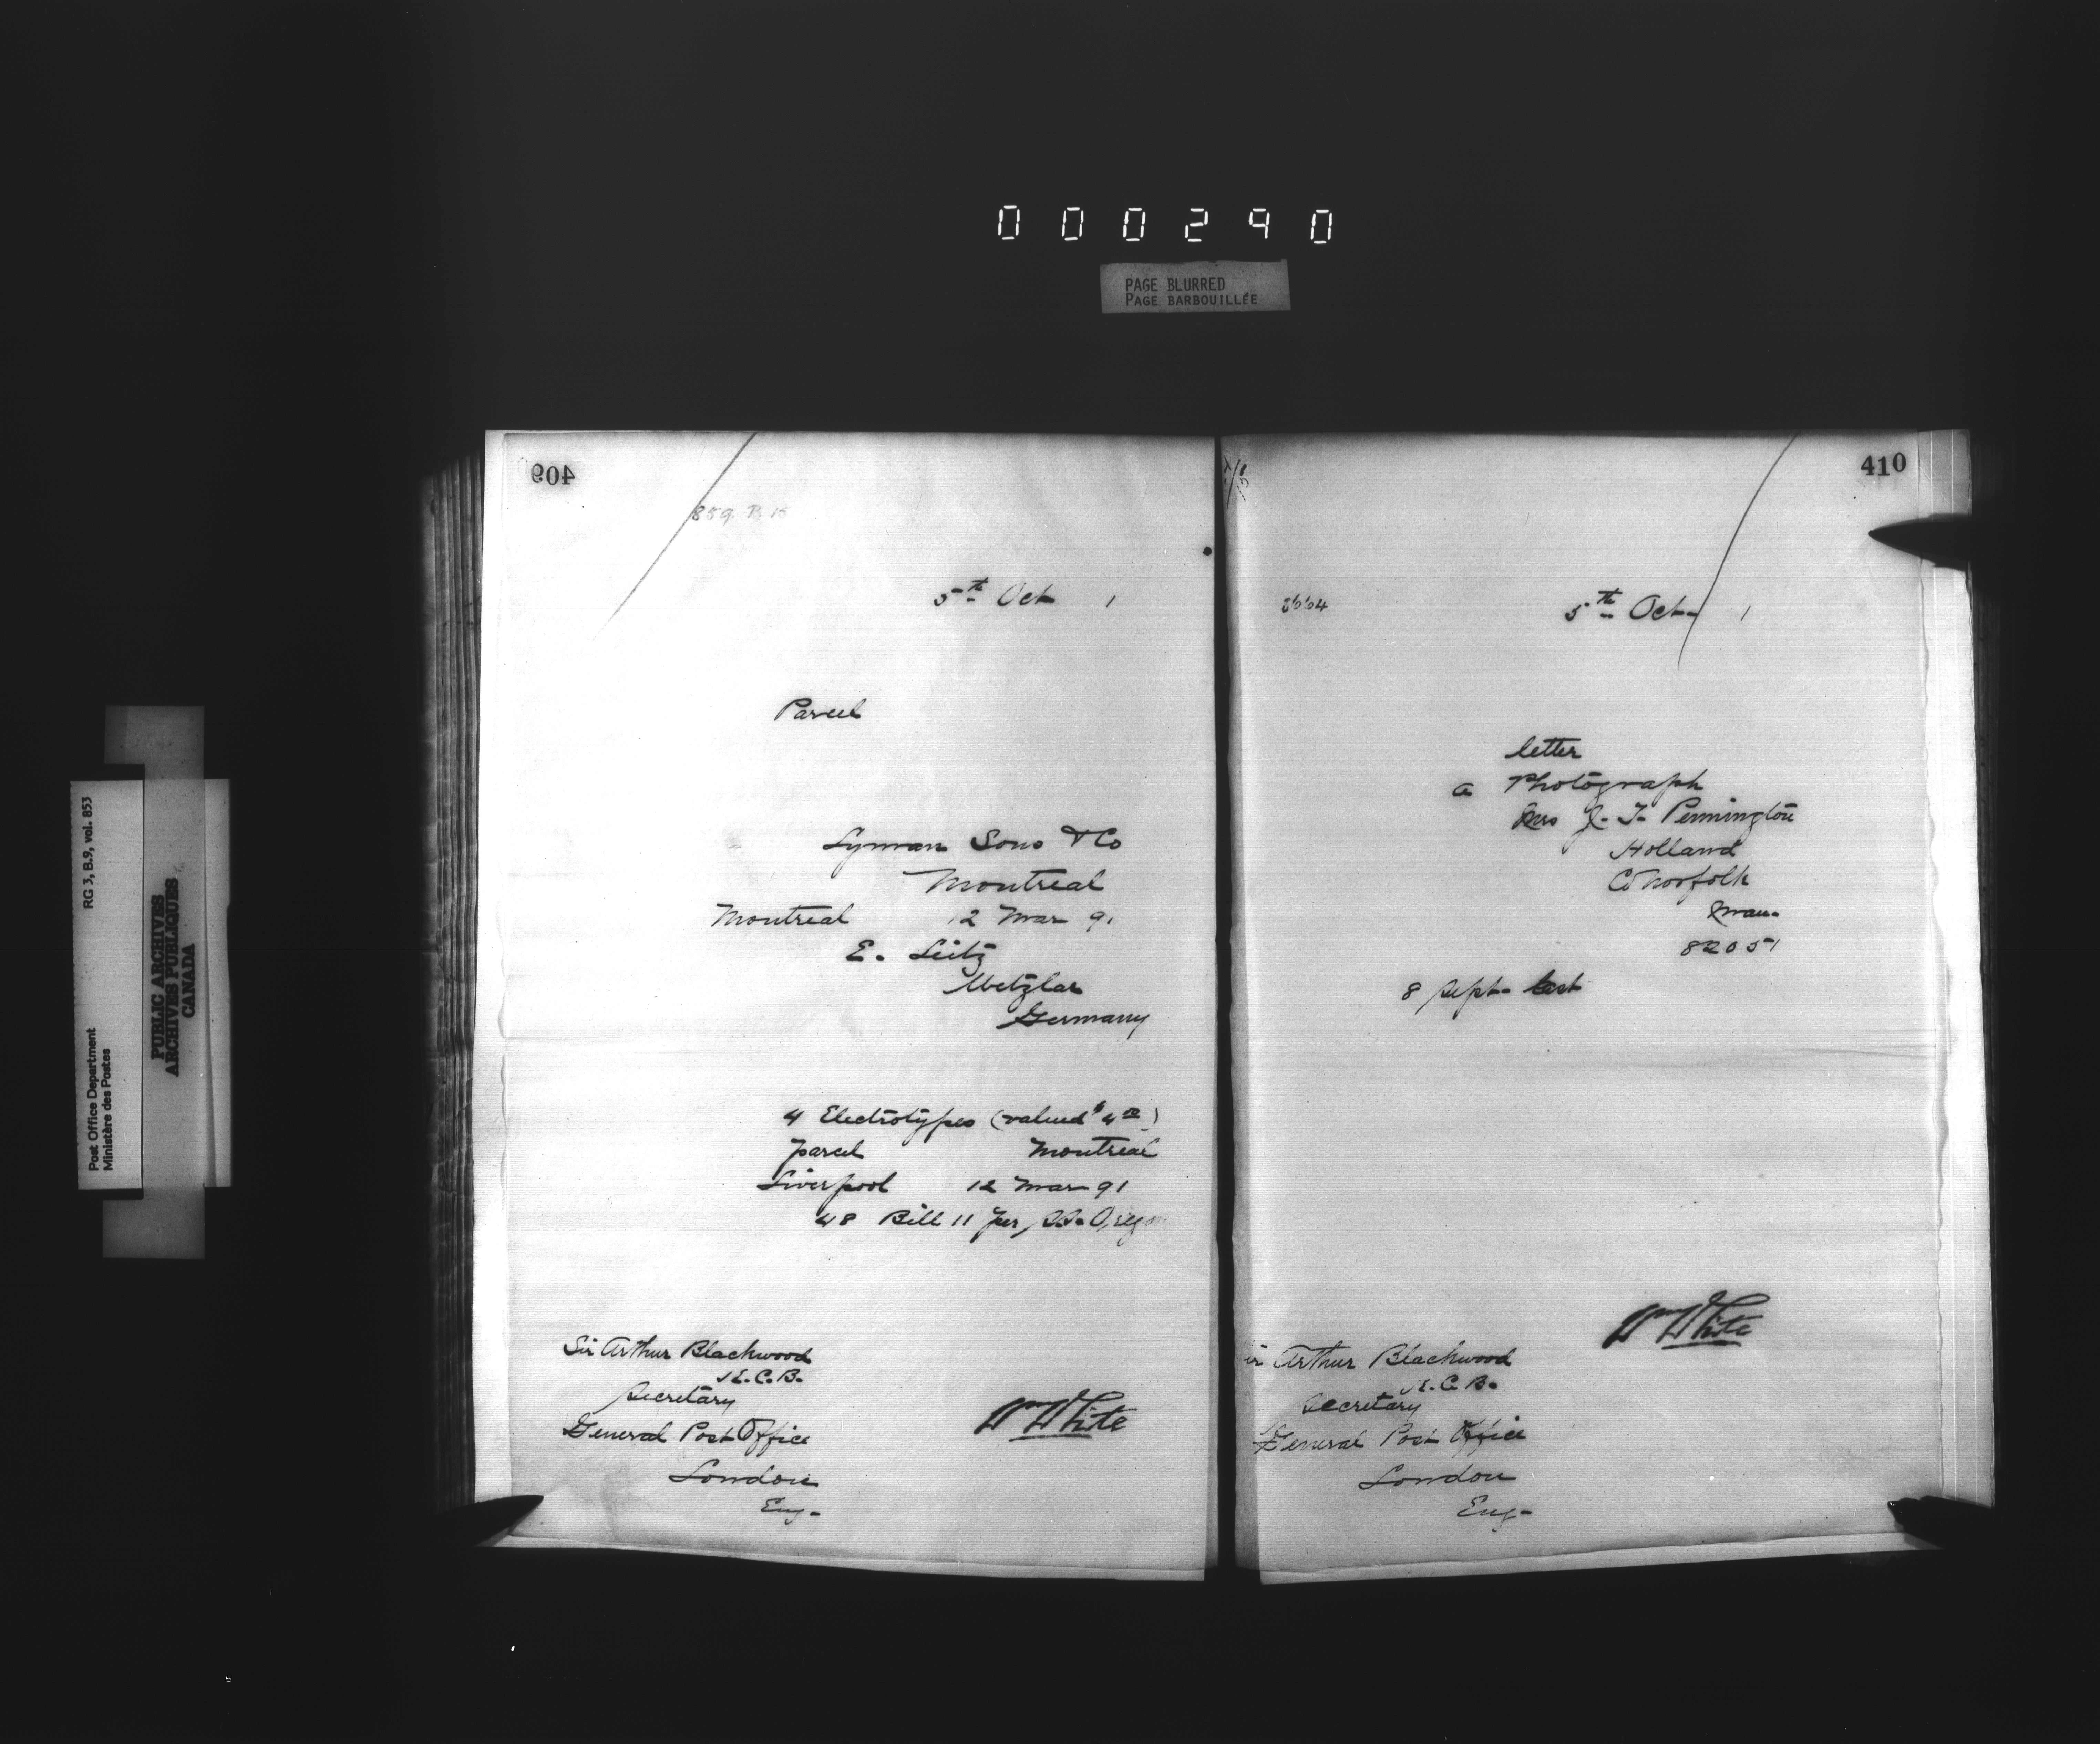 000290
PAGE BLURRED
PAGE BARBOUILLÉE
RG 3, B.9, vol. 853
Post Office Department
Ministère des Postes
PUBLIC ARCHIVES
ARCHIVES PUBLIQUES
CANADA
409
859. B 15
5th Oct 1
Parcel
Lyman Sons & Co
Montreal
Montreal 12 Mar 91
E. Leitz
Wetzlar
Germany
4 Electrotypes (valued $4 00)
parcel Montreal
Liverpool 12 Mar 91
48 Bill 11 per SS. Oregon
Sir Arthur Blackwood
K.C.B.
Secretary
General Post Office
London
Eng.
Wm White
410
5th Oct. 1
letter
a Photograph
Mrs J. T. Pennington
Holland
Co Norfolk
Man.
82051
8 Sept. last
Wm White
ir Arthur Blackwood
K.C.B.
Secretary
General Post Office
London
Eng.